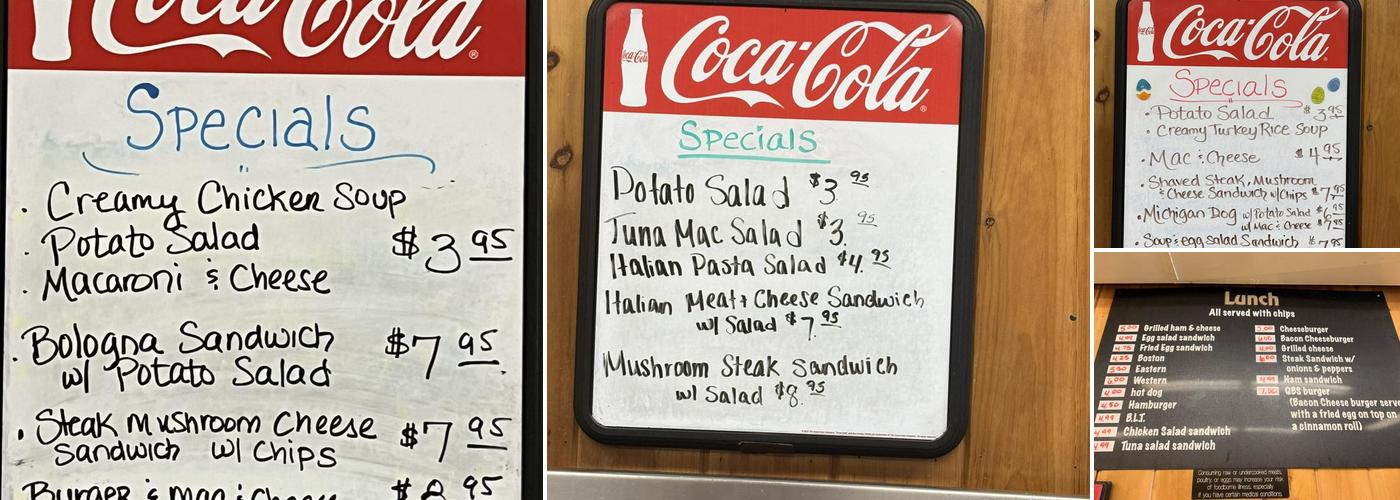 Coca-Cola
Specials
. Creamy Chicken Soup
. Potato Salad $3 95
. Macaroni & Cheese
. Bologna Sandwich $7 95
w/ Potato Salad
. Steak Mushroom Cheese $7 95
Sandwich w/ Chips
Coca-Cola
Specials
Potato Salad $3. 95
Tuna Mac Salad $3. 95
Italian Pasta Salad $4. 95
Italian Meat & Cheese Sandwich
w/ Salad $7. 95
Mushroom Steak Sandwich
w/ Salad $8. 95
Coca-Cola
Specials
• Potato Salad $3 95
• Creamy Turkey Rice Soup
• Mac & Cheese $4 95
• Shaved Steak, Mushroom
& Cheese Sandwich w/Chips $7 95
• Michigan Dog w/ Potato Salad $6 95
w/ Mac & Cheese
• Soup & egg salad Sandwich $7 95
Lunch
All served with chips
Grilled ham & cheese
4.99 Egg salad sandwich
4.75 Fried Egg sandwich
4.25 Boston
Eastern
6.00 Western
4.00 hot dog
4.50 Hamburger
4.99 B.L.T.
4.99 Chicken Salad sandwich
4.99 Tuna salad sandwich
5.00 Cheeseburger
6.00 Bacon Cheeseburger
4.00 Grilled cheese
Steak Sandwich w/
onions & peppers
4.99 Ham sandwich
7.50 QBS burger
(Bacon Cheese burger serve
with a fried egg on top on
a cinnamon roll)
Consuming raw or undercooked meats,
poultry, or eggs may increase your risk
of foodborne illness, especially
if you have certain medical conditions.